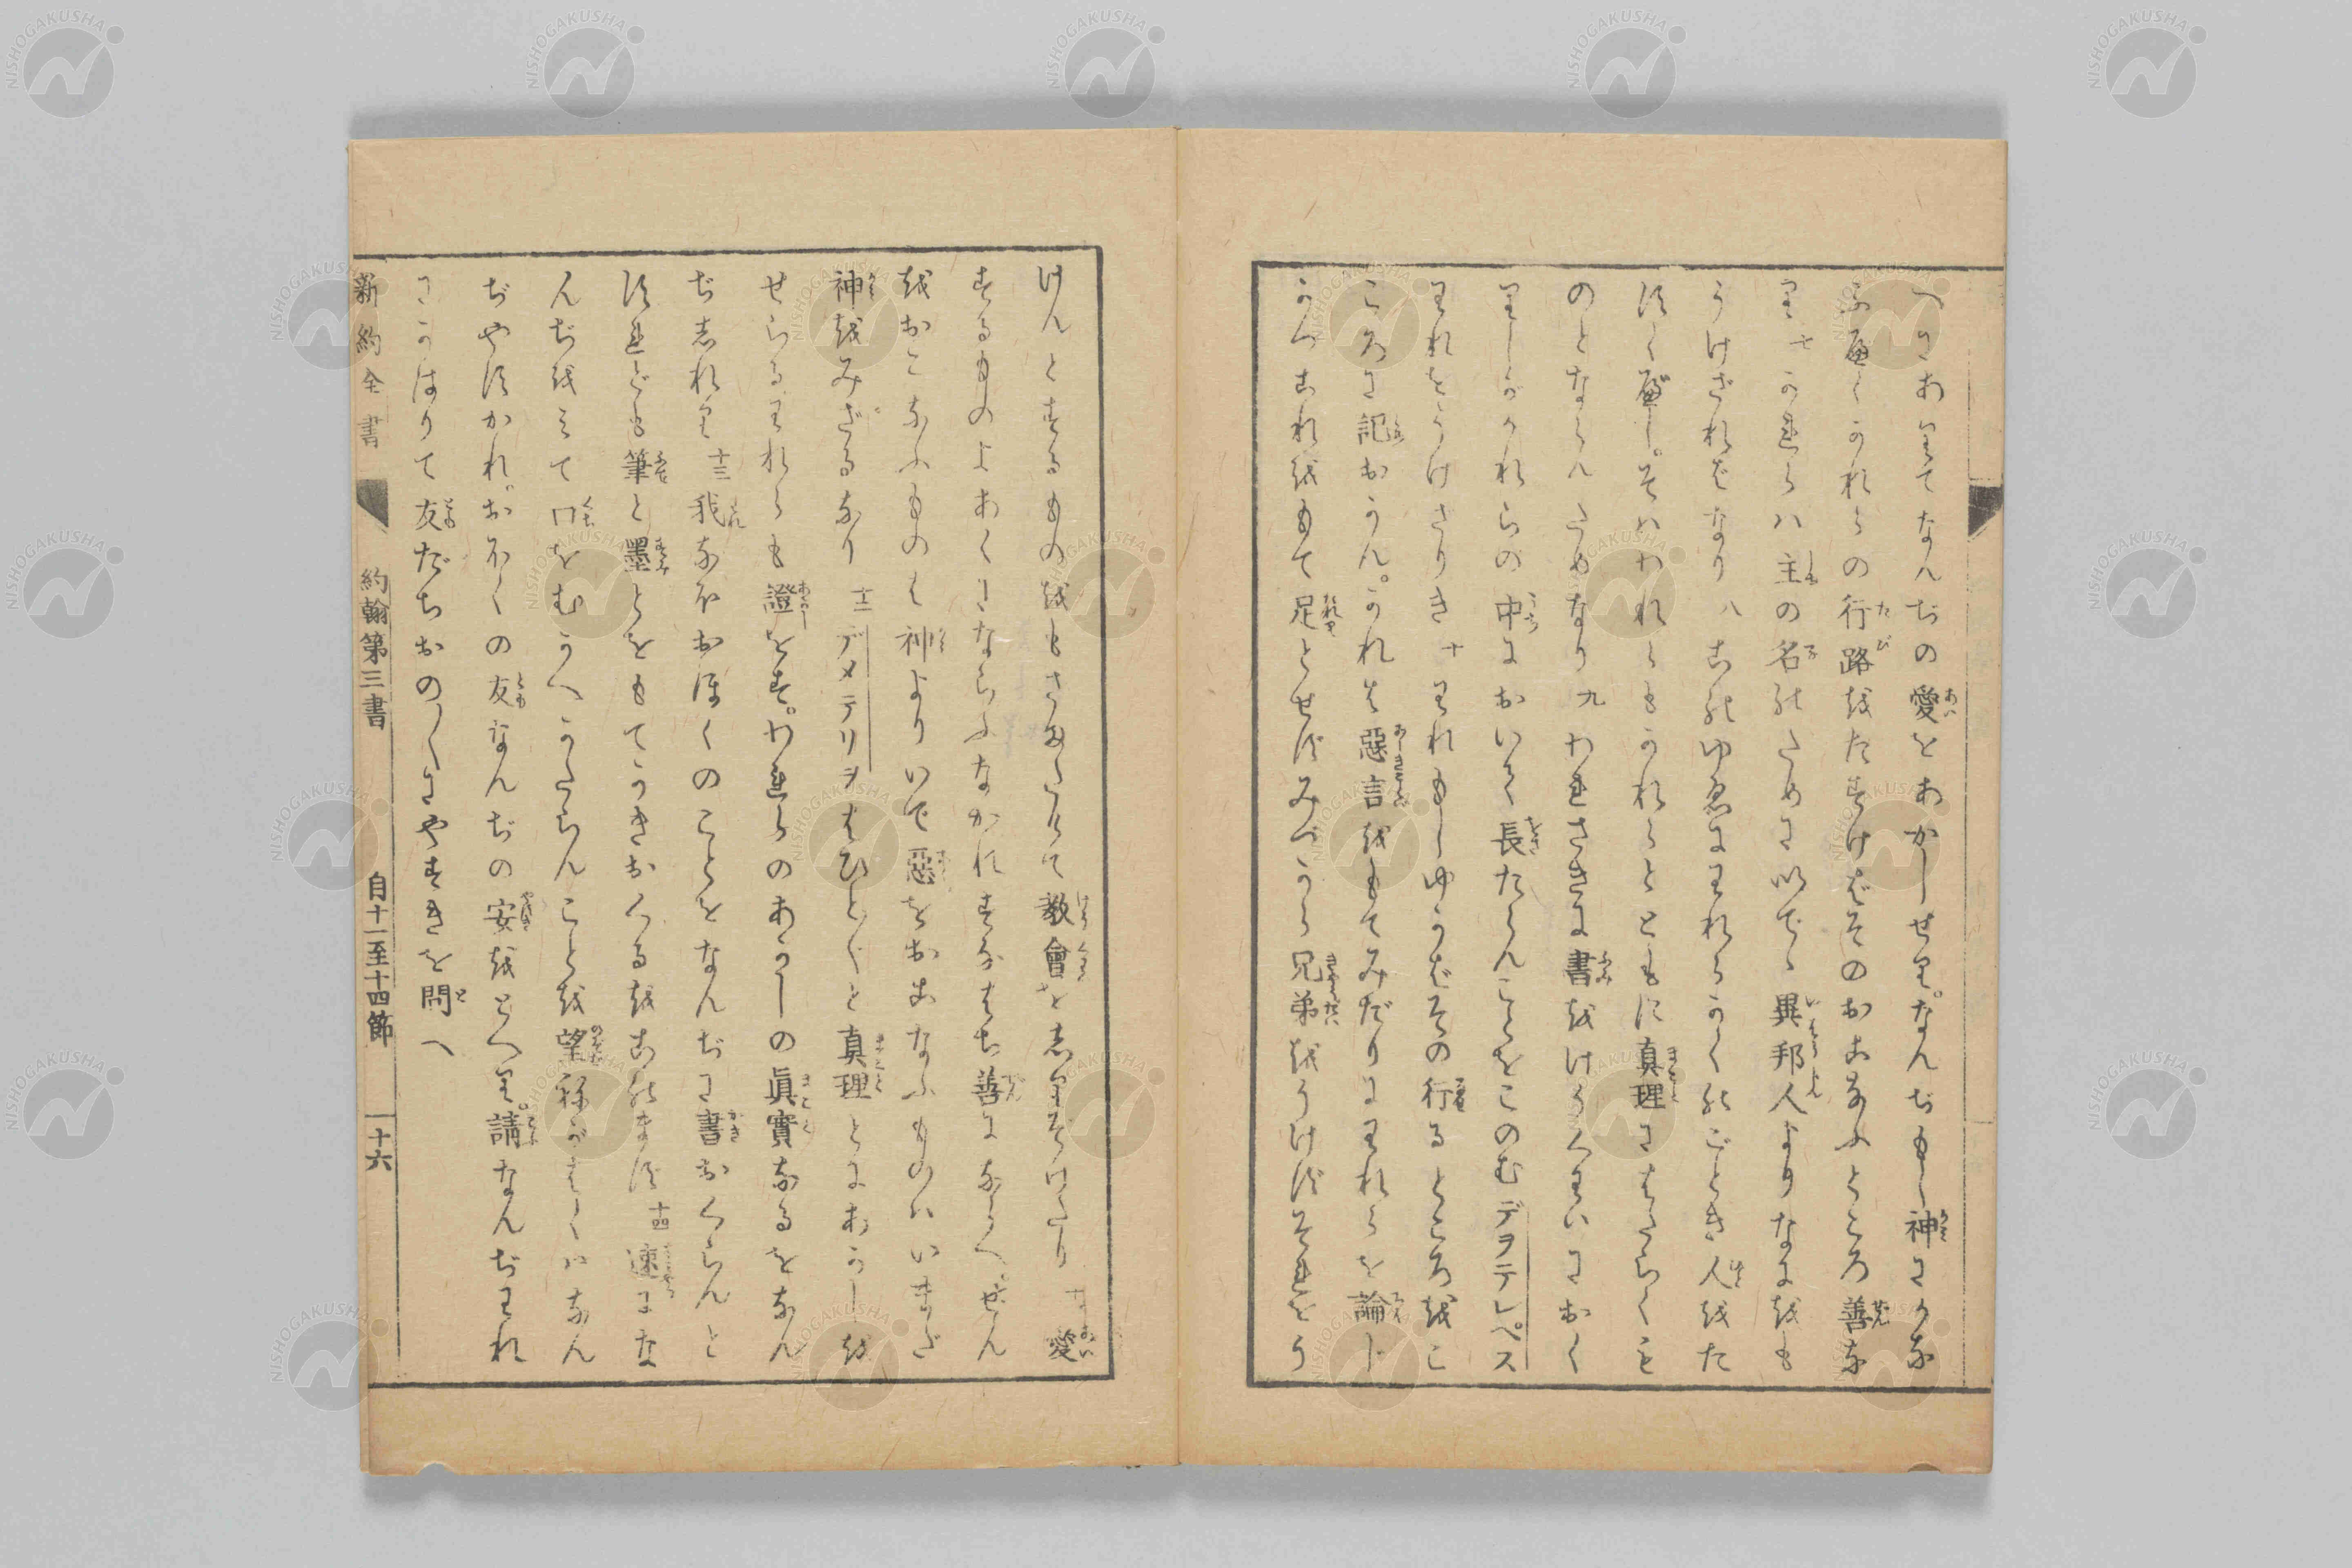 へにありてなんぢの愛をあかしせり。なんぢもし神にかな
ふ厚くかれらの行路をたすけばそのおこなふところ善な
り 七 かれらハ主の名のために以でゝ異邦人よりなにをも
うけざればなり 八 このゆゑにわれらかくのごとき人をた
すく厚し。そはわれらもかれらとともに真理にはたらくも
のとならんためなり 九 われさきに書をけうくわいにおく
りしがかれらの中においく長たらんことをこのむデヲテレペス
われをうけざりき 十 われもしゆかばその行るところをこ
ころに記おかん。かれは惡言をもてみだりにわれらを論じ
かつこれをもて足とせずみづから兄弟をうけずそれをう
けんとするものをもさまたげて教會を志りぞけたり 十一 愛
するものよあくにならふなかれすなはち善にならへ。ぜん
をおこなふものは神よりいで惡をおこなふものハいまだ
神をみざるなり 十二 デメテリヲはひとびと真理とにあかしを
せらるわれらも證をす。われらのあかしの眞實なるをなん
ぢ志れり 十三 我なほおほくのことをなんぢに書おくらんと
すれども筆と墨とをもてかきおくるをこのまず 十四 速にな
んぢをみて口をむかへかたらんことを望ねがはくハなん
ぢやすかれ。おほくの友なんぢの安をとへり。請なんぢわれ
にかはりて友だちおの〱にやすきを問へ
新約全書 約翰第三書 自十一至十四節 十六
NISHOGAKUSHA